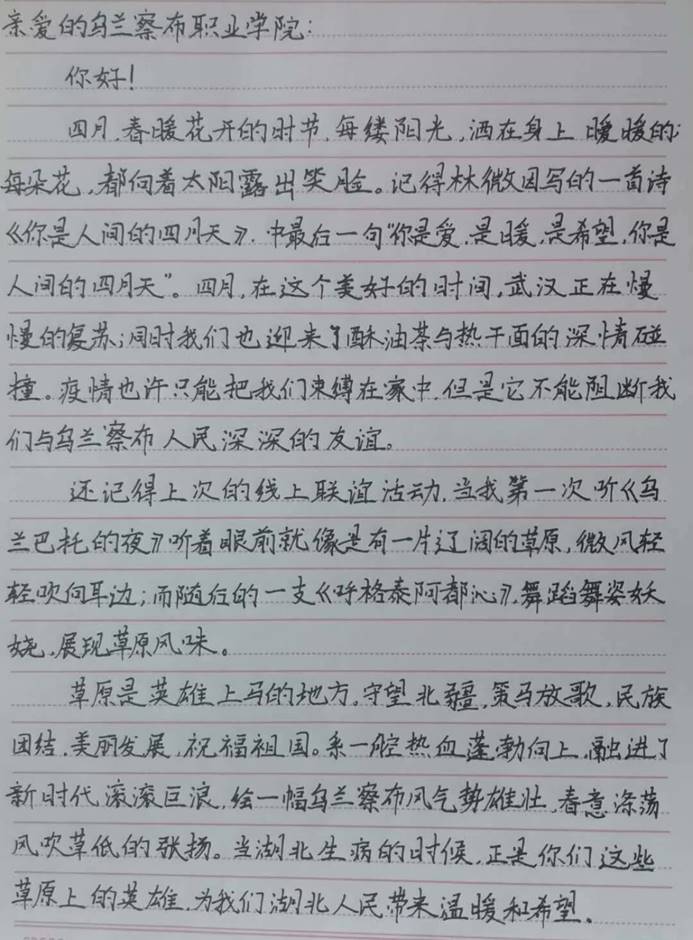 亲爱的乌兰察布职业学院:
你好!
四月,春暖花开的时节,每缕阳光,洒在身上 暖暖的;
每朵花,都向着太阳露出笑脸。记得林微因写的一首诗
《你是人间的四月天》,中最后一句“你是爱,是暖,是希望,你是
人间的四月天”。四月,在这个美好的时间,武汉正在慢
慢的复苏;同时我们也迎来了酥油茶与热干面的深情碰
撞。疫情也许只能把我们束缚在家中,但是它不能阻断我
们与乌兰察布人民深深的友谊。
还记得上次的线上联谊活动,当我第一次听《乌
兰巴托的夜》听着眼前就像是有一片辽阔的草原,微风轻
轻吹向耳边;而随后的一支《呼格泰阿都沁》,舞蹈舞姿妖
娆,展现草原风味。
草原是英雄上马的地方,守望北疆,策马放歌,民族
团结,美丽发展,祝福祖国。系一腔热血蓬勃向上,融进了
新时代滚滚巨浪,绘一幅乌兰察布风气势雄壮,春意涤荡
风吹草低的张扬。当湖北生病的时候,正是你们这些
草原上的英雄,为我们湖北人民带来温暖和希望。